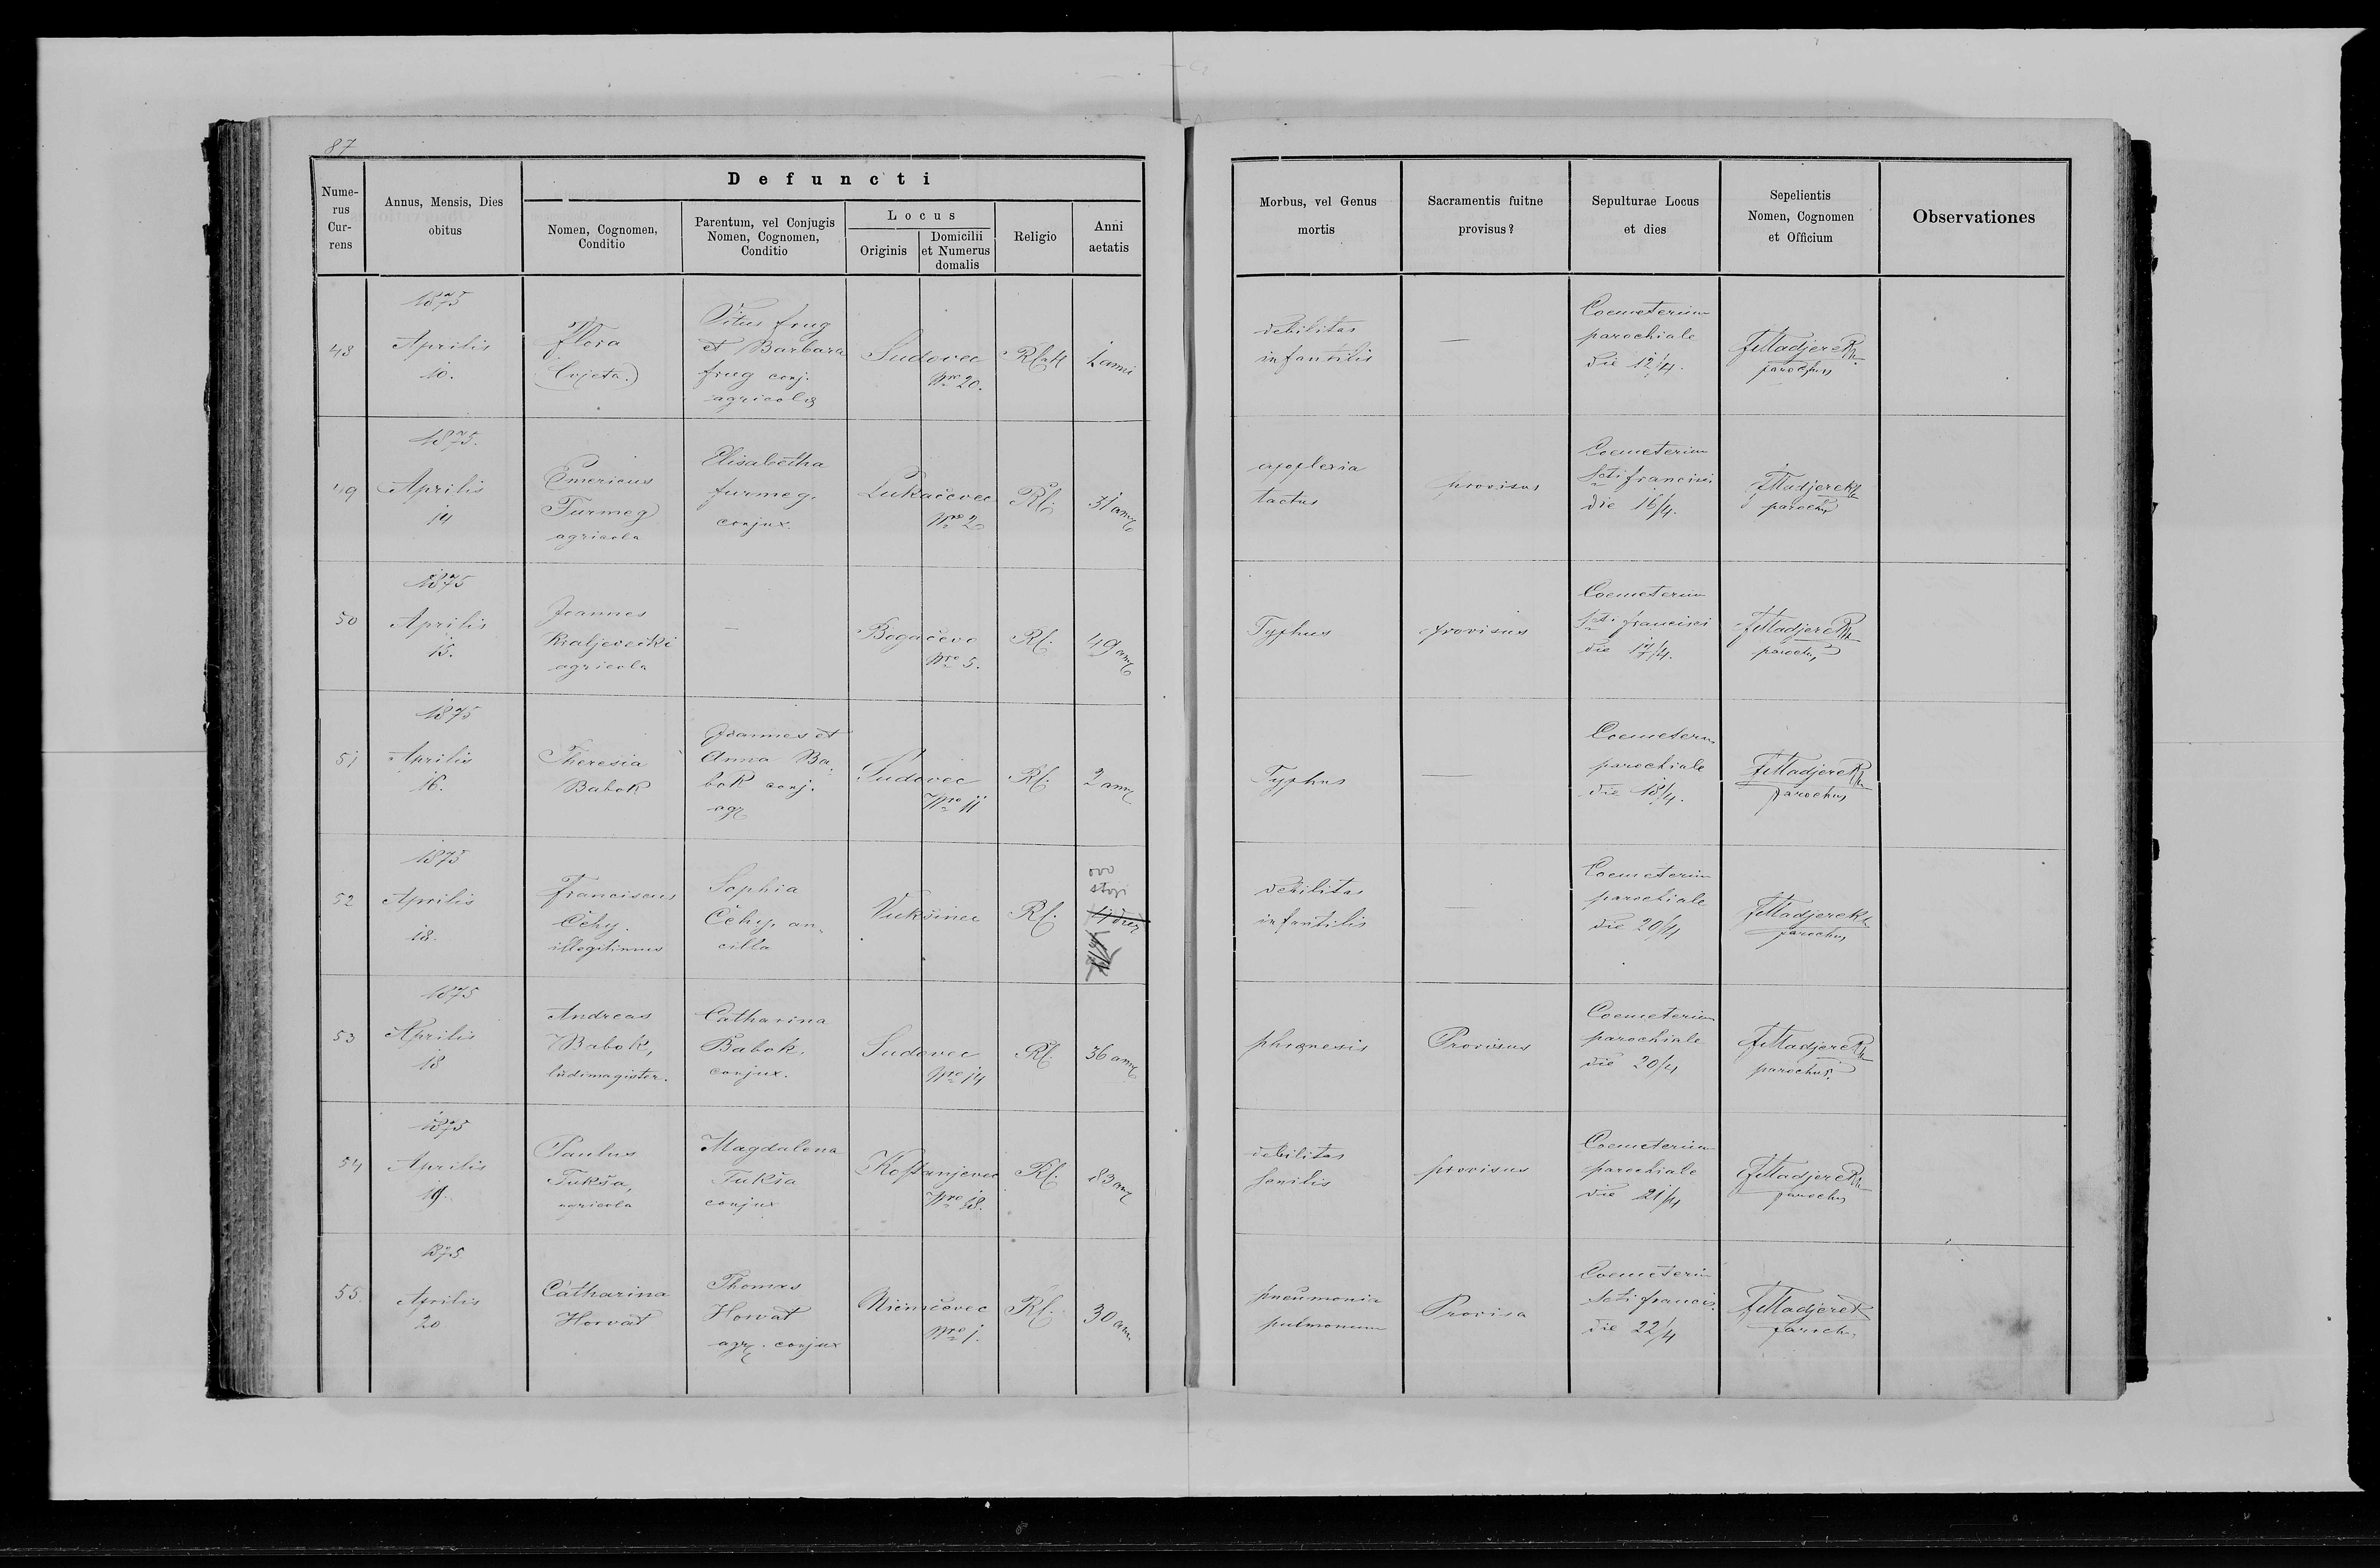 87
Defuncti
Nume-
rus
Cur-
rens
Annus, Mensis, Dies
obitus
Nomen, Cognomen,
Conditio
Parentum, vel Conjugis
Nomen, Cognomen,
Conditio
Locus
Originis
Domicilii
et Numerus
domalis
Religio
Anni
aetatis
Morbus, vel Genus
mortis
Sacramentis fuitne
provisus?
Sepulturae Locus
et dies
Sepelientis
Nomen, Cognomen
et Officium
Observationes
48
1875
Aprilis
10.
Flora
(Cvjeta.)
Vitus frug
et Barbara
frug conj.
agricolæ
Sudovec
Nro 20.
debilitas
infantilis
—
Coemeterium
parochiale
die 12/4.
Madjerek
parochus
49
1875.
Aprilis
14
Emericus
Furmeg
agricola
Elisabetha
furmeg.
conjux.
Lukačevec
Nro 2
Rf.
31
apoplexia
tactus
provisus
Coemeterium
Scti francisci
die 16/4.
Madjerek
parochus
50
1875
Aprilis
15.
Joannes
Kraljevečki
agricola
—
Bogačevo
Nro 5.
Rf.
49
Typhus
provisus
Coemeterium
Scti francisci
die 17/4.
Madjerek
parochus
51
1875
Aprilis
16.
Theresia
Babok
Joannes et
Anna Ba-
bok conj.
Sudovec
Nro 11
Rf.
2
Typhus
—
Coemeterium
parochiale
die 18/4.
Madjerek
parochus
52
1875
Aprilis
18.
Franciscus
Čehy.
illegitimus
Sophia
Čehy, an-
cilla
Vukšinec
Rf.
ovo
stoji
debilitas
infantilis
—
Coemeterium
parochiale
die 20/4
Madjerek
parochus
53
1875
Aprilis
18
Andreas
Babok,
ludimagister.
Catharina
Babok,
conjux.
Sudovec
Nro 14
Rf.
36
phrenesis
Provisus
Coemeterium
parochiale
die 20/4
Madjerek
parochus.
54
1875
Aprilis
19.
Paulus
Tukša,
agricola
Magdalena
Tukša
conjux
Kostanjevec
Nro 18.
Rf.
83
debilitas
senilis
provisus
Coemeterium
parochiale
die 21/4
Madjerek
parochus
55
1875
Aprilis
20
Catharina
Horvat
Thomas
Horvat
conjux
Nro 1.
Rf.
30
pneumonia
pulmonum
Provisa
Coemeterium
Scti francis.
die 22/4
Madjerek